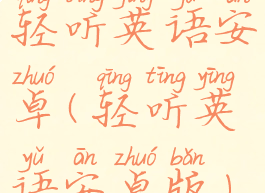 qīng tīng yīng yǔ ān
轻听英语安
zhuó qīng tīng yīng
卓(轻听英
yǔ ān zhuó bǎn
语安卓版)